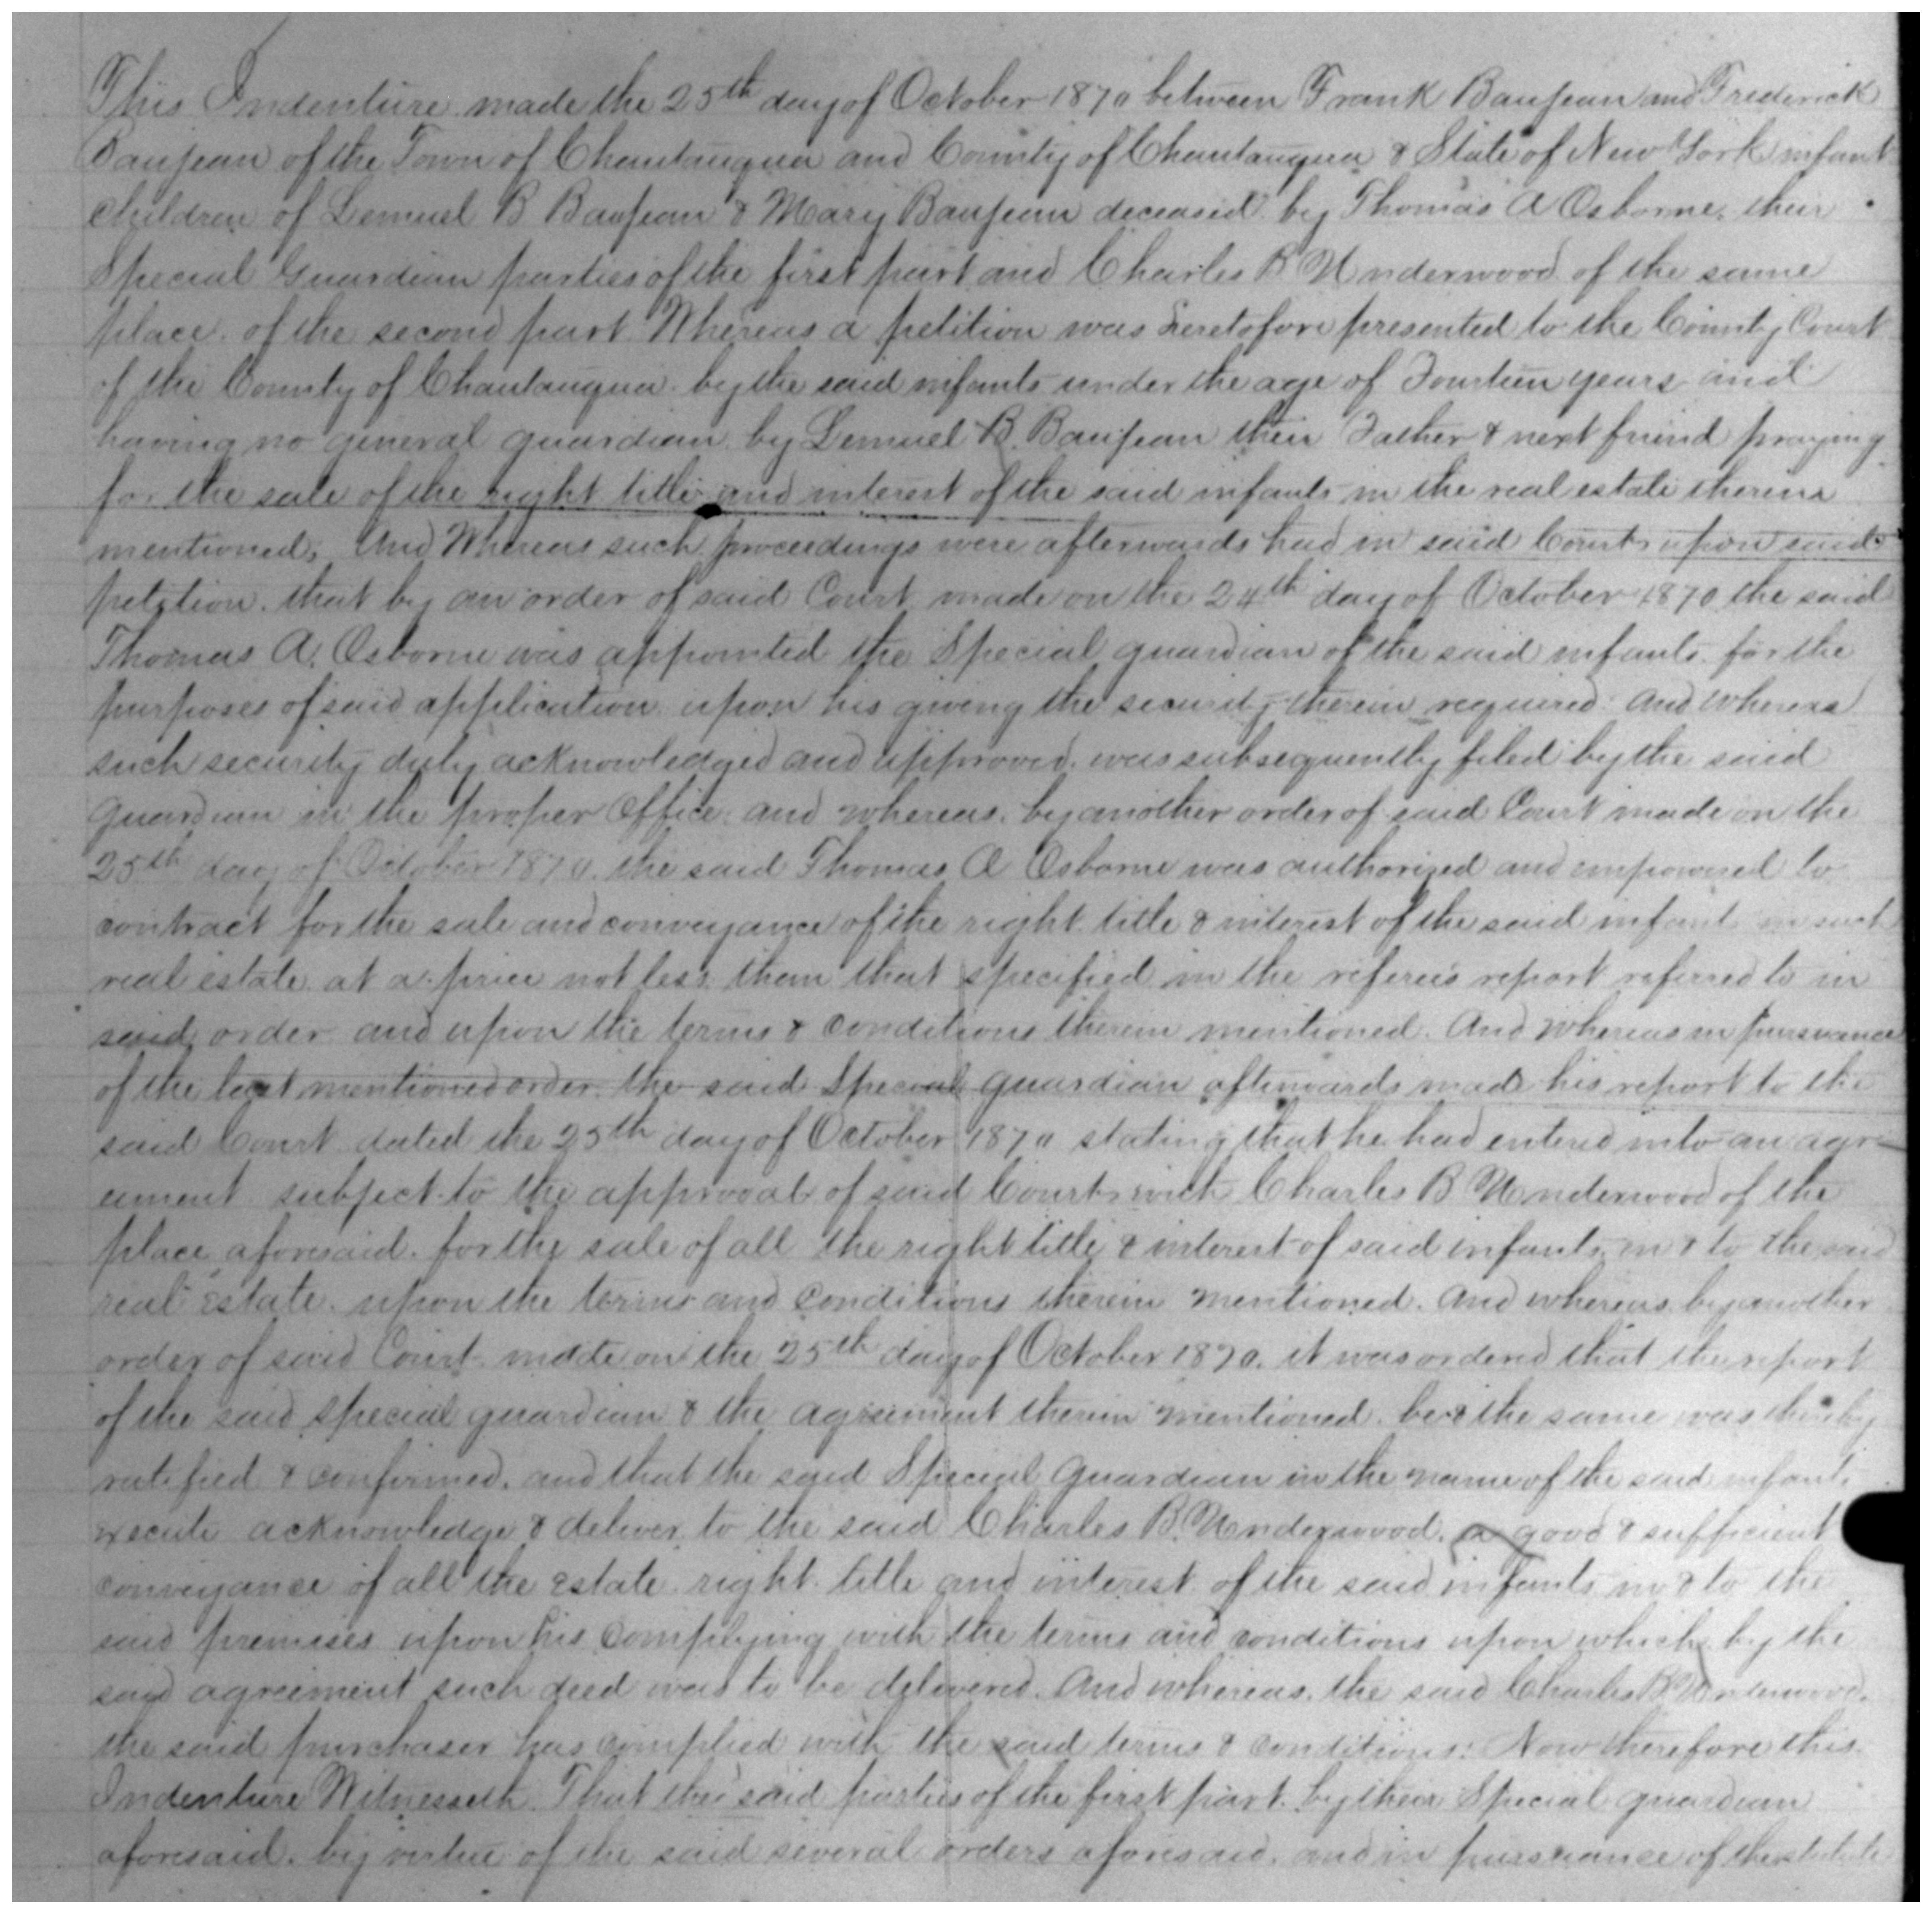 This Indenture made the 25th day of October 1870 between Frank Baujean and Frederick
Baujean of the Town of Chautauqua and County of Chautauqua & State of New York infant
children of Lemuel B Baujean & Mary Baujean deceased by Thomas A Osborne, their
Special Guardian parties of the first part and Charles B Underwood of the same
place of the second part Whereas a petition was heretofore presented to the County Court
of the County of Chautauqua by the said infants under the age of Fourteen years and
having no general guardian by Lemuel B. Baujean their Father & next friend praying
for the sale of the right title and interest of the said infants in the real estate therein
mentioned, And Whereas such proceedings were afterwards had in said Court upon said
petition that by an order of said Court made on the 24th day of October 1870 the said
Thomas A. Osborne was appointed the Special guardian of the said infants for the
purposes of said application upon his giving the security therein required And whereas
such security duly acknowledged and approved was subsequently filed by the said
guardian in the proper office and whereas by another order of said Court made on the
25th day of October 1870 the said Thomas A Osborne was authorized and empowered to
contract for the sale and conveyance of the right title & interest of the said infants in such
real estate at a price not less than that specified in the referees report referred to in
said order and upon the terms & conditions therein mentioned. And whereas in pursuance
of the last mentioned order the said Special guardian afterwards made his report to the
said Court dated the 25th day of October 1870 stating that he had entered into an agre
ement subject to the approval of said Court with Charles B Underwood of the
place aforesaid for the sale of all the right title & interest of said infants in & to the said
real estate upon the terms and conditions therein mentioned. And whereas by another
order of said Court made on the 25th day of October 1870. it was ordered that the report
of the said special guardian & the agreement therein mentioned be & the same was thereby
ratified & confirmed, and that the said Special Guardian in the name of the said infants
execute acknowledge & deliver to the said Charles B. Underwood a good & sufficient
conveyance of all the estate right title and interest of the said infants in & to the
said premises upon his complying with the terms and conditions upon which by the
said agreement such deed was to be delivered. And whereas, the said Charles B Underwood,
the said purchaser has complied with the said terms & conditions: Now therefore this
Indenture Witnesseth. That the said parties of the first part by their Special guardian
aforesaid by virtue of the said several orders aforesaid, and in pursuance of the statute